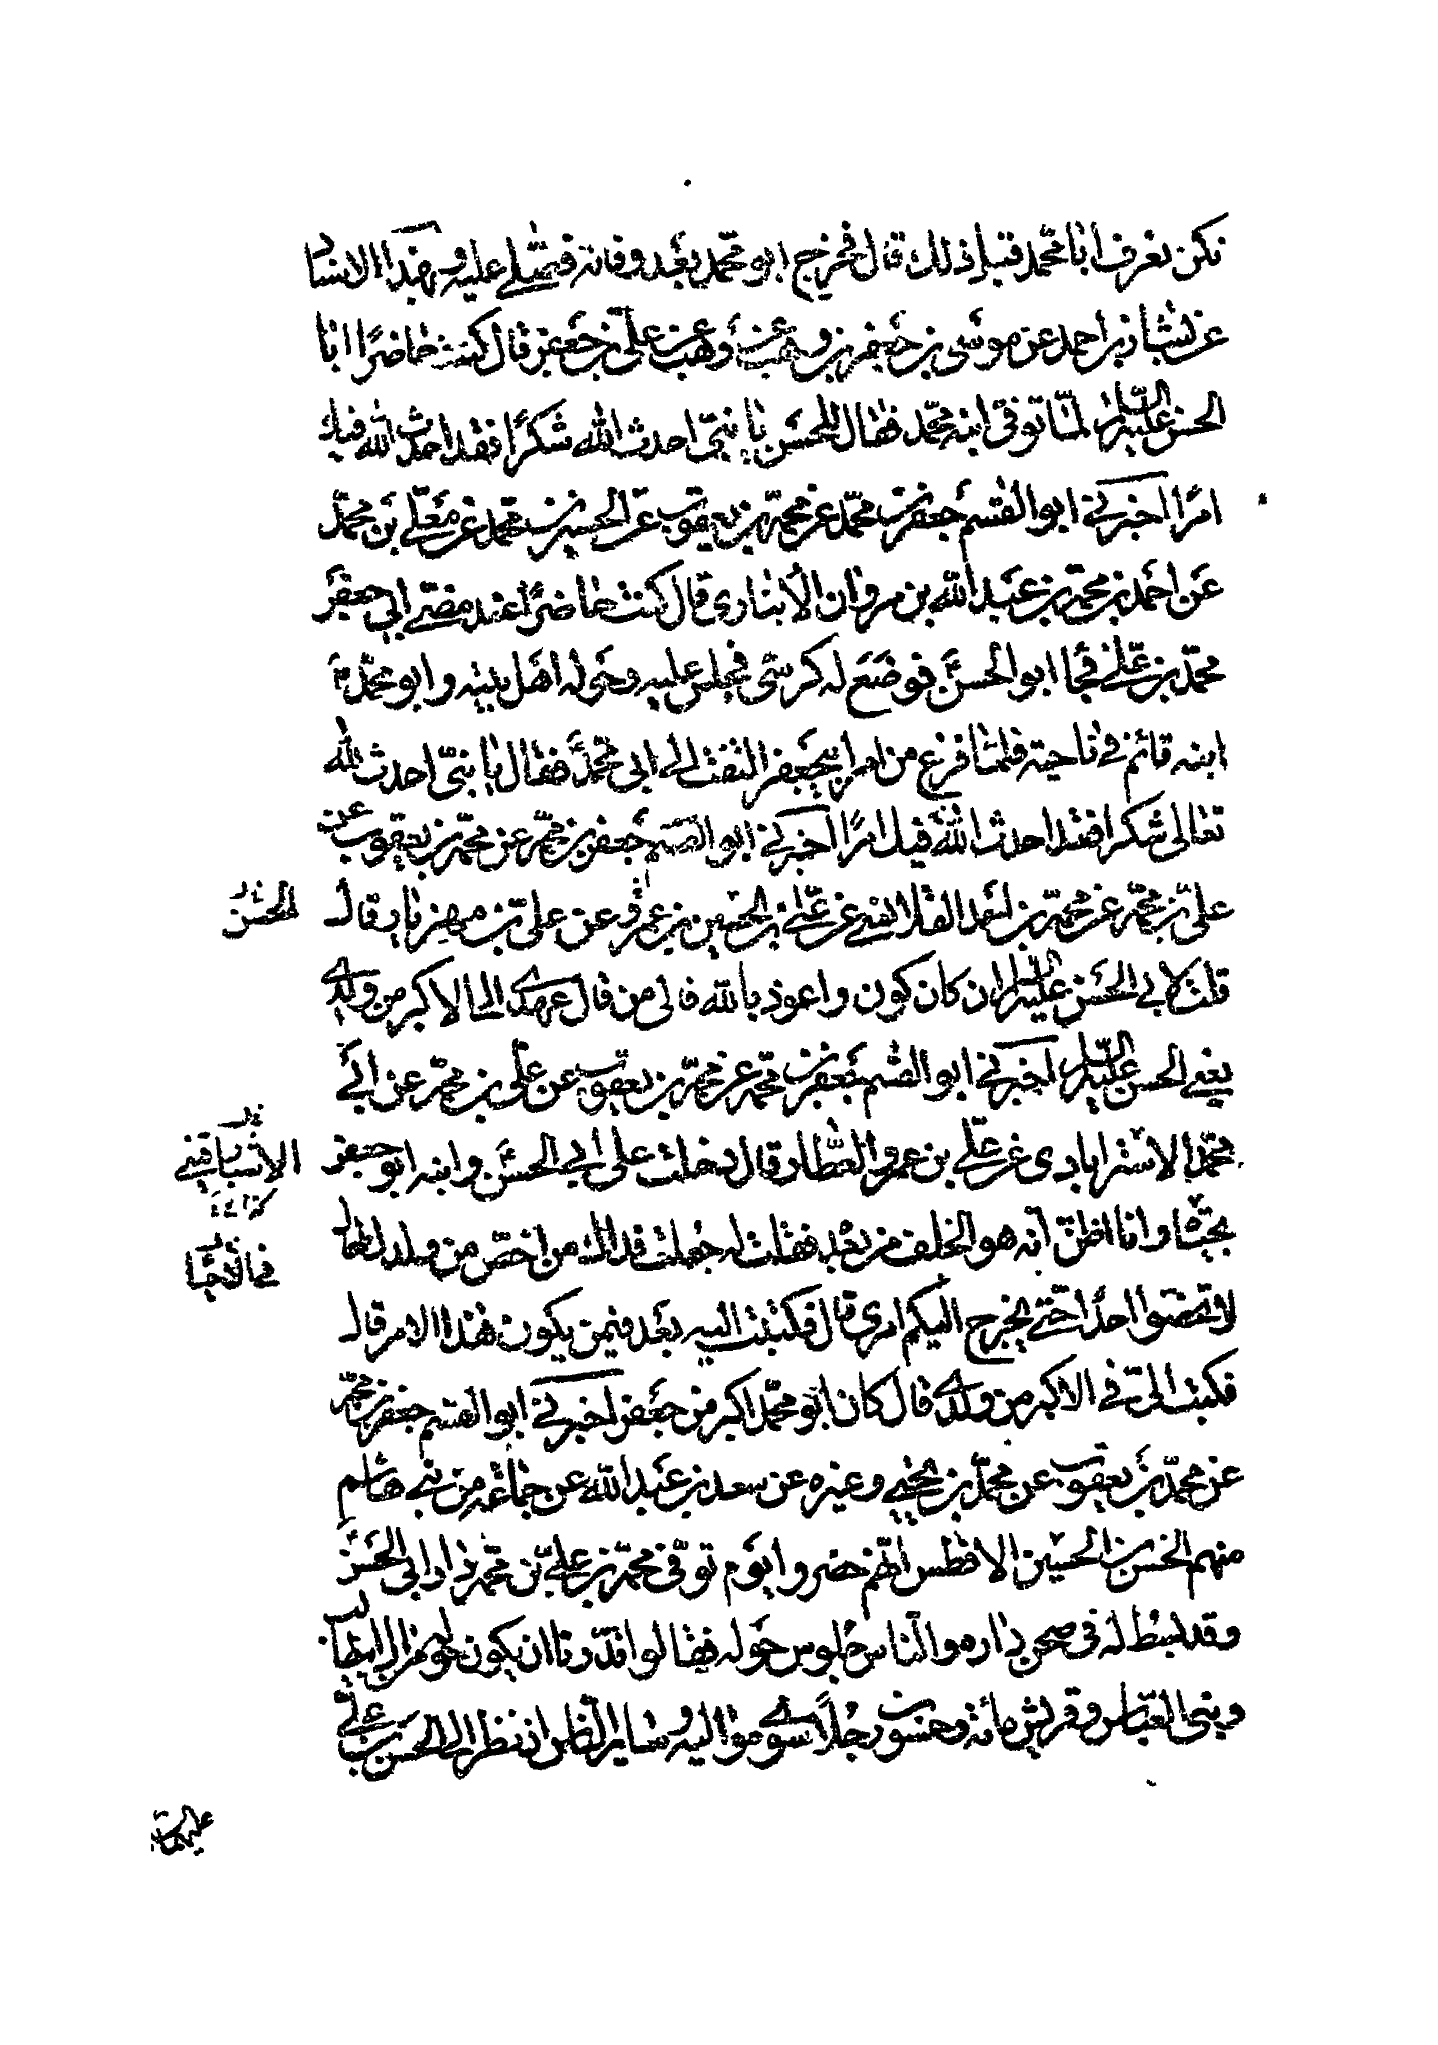 نكن نعرف ابا محمد قبل ذلك قال فخرج ابو محمد بعد وفاته فصلى عليه وبهذا الاسناد
عن بشار بن احمد عن موسى بن جعفر بن وهب عن علي بن جعفر قال كنت حاضرا ابا
الحسن عليه السلام لما توفى ابنه محمد فقال للحسن يا بنى احدث لله شكرا فقد احدث الله فيك
امرا اخبرني ابو القسم جعفر بن محمد عن محمد بن يعقوب عن الحسين بن محمد عن معلى بن محمد
عن احمد بن محمد بن عبد الله بن مروان الانبارى قال كنت حاضرا عند مضى ابي جعفر
محمد بن علي فجاء ابو الحسن فوضع له كرسى فجلس عليه وحوله اهل بيته وابو محمد
ابنه قائم في ناحية فلما فرغ من امر ابي جعفر التفت الى ابى محمد فقال يا بنى احدث لله
تعالى شكرا فقد احدث الله فيك امرا اخبرني ابو القسم جعفر بن محمد عن محمد بن يعقوب عن
علي بن محمد عن محمد بن احمد القلانسي عن علي بن الحسين بن عمرو عن علي بن مهزيار قال
الحسن
قلت لابي الحسن عليه السلام ان كان كون واعوذ بالله فالى من قال عهدي الى الاكبر من ولدي
يعني الحسن عليه السلام اخبرني ابو القسم جعفر بن محمد عن محمد بن يعقوب عن علي بن محمد عن ابي
محمد الاسترابادى عن علي بن عمرو العطار قال دخلت على ابي الحسن وابنه ابو جعفر
بحياء وانا اظن انه هو الخلف من بعده فقلت له جعلت فداك من اخص من ولدك فقال
في الاحيا
لا تخصوا احدا حتى يخرج اليكم امرى قال فكتبت اليه بعد فيمن يكون هذا الامر قال
فكتب الى في الاكبر من ولدي قال كان ابو محمد اكبر من جعفر اخبرني ابو القسم جعفر بن محمد
عن محمد بن يعقوب عن محمد بن يحيى وغيره عن سعد بن عبد الله عن جماعة من بني هاشم
منهم الحسن بن الحسين الافطس انهم حضروا يوم توفى محمد بن علي بن محمد دار ابى الحسن
وقد بسط له فى صحن داره والناس جلوس حوله فقالوا قدرنا ان يكون حوله من ال ابيطالب
وبنى العباس وقريش مائة وخمسون رجلا سوي مواليه وساير الناس اذ نظر الى الحسن بن علي